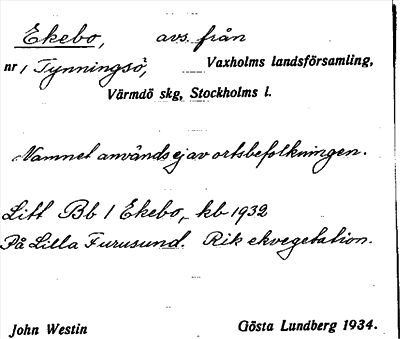 Ekebo, avs. från
nr 1 Tynningsö, Vaxholms landsförsamling,
Värmdö skg, Stockholms l.
Namnet används ej av ortsbefolkningen.
Litt Bb 1 Ekebo, kb 1932
På Lilla Furusund. Rik ekvegetation.
John Westin Gösta Lundberg 1934.